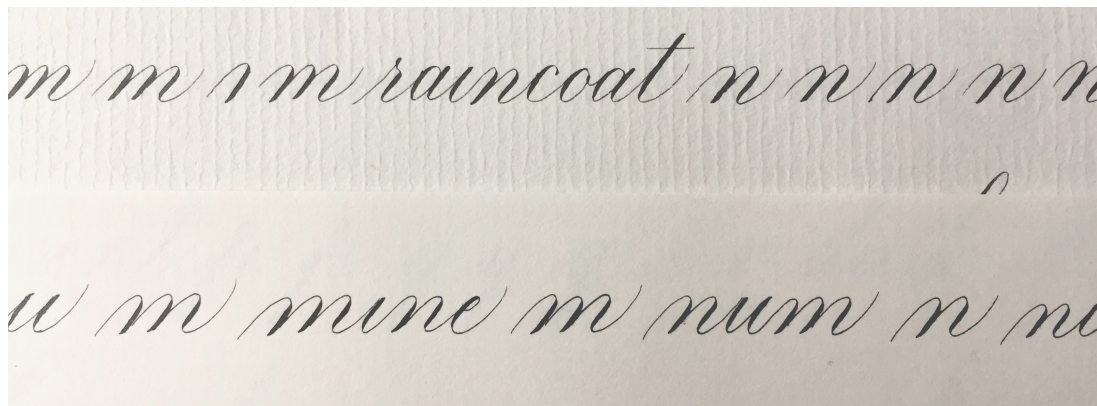 m m ı m raincoat n n n n n
u m mine m num n